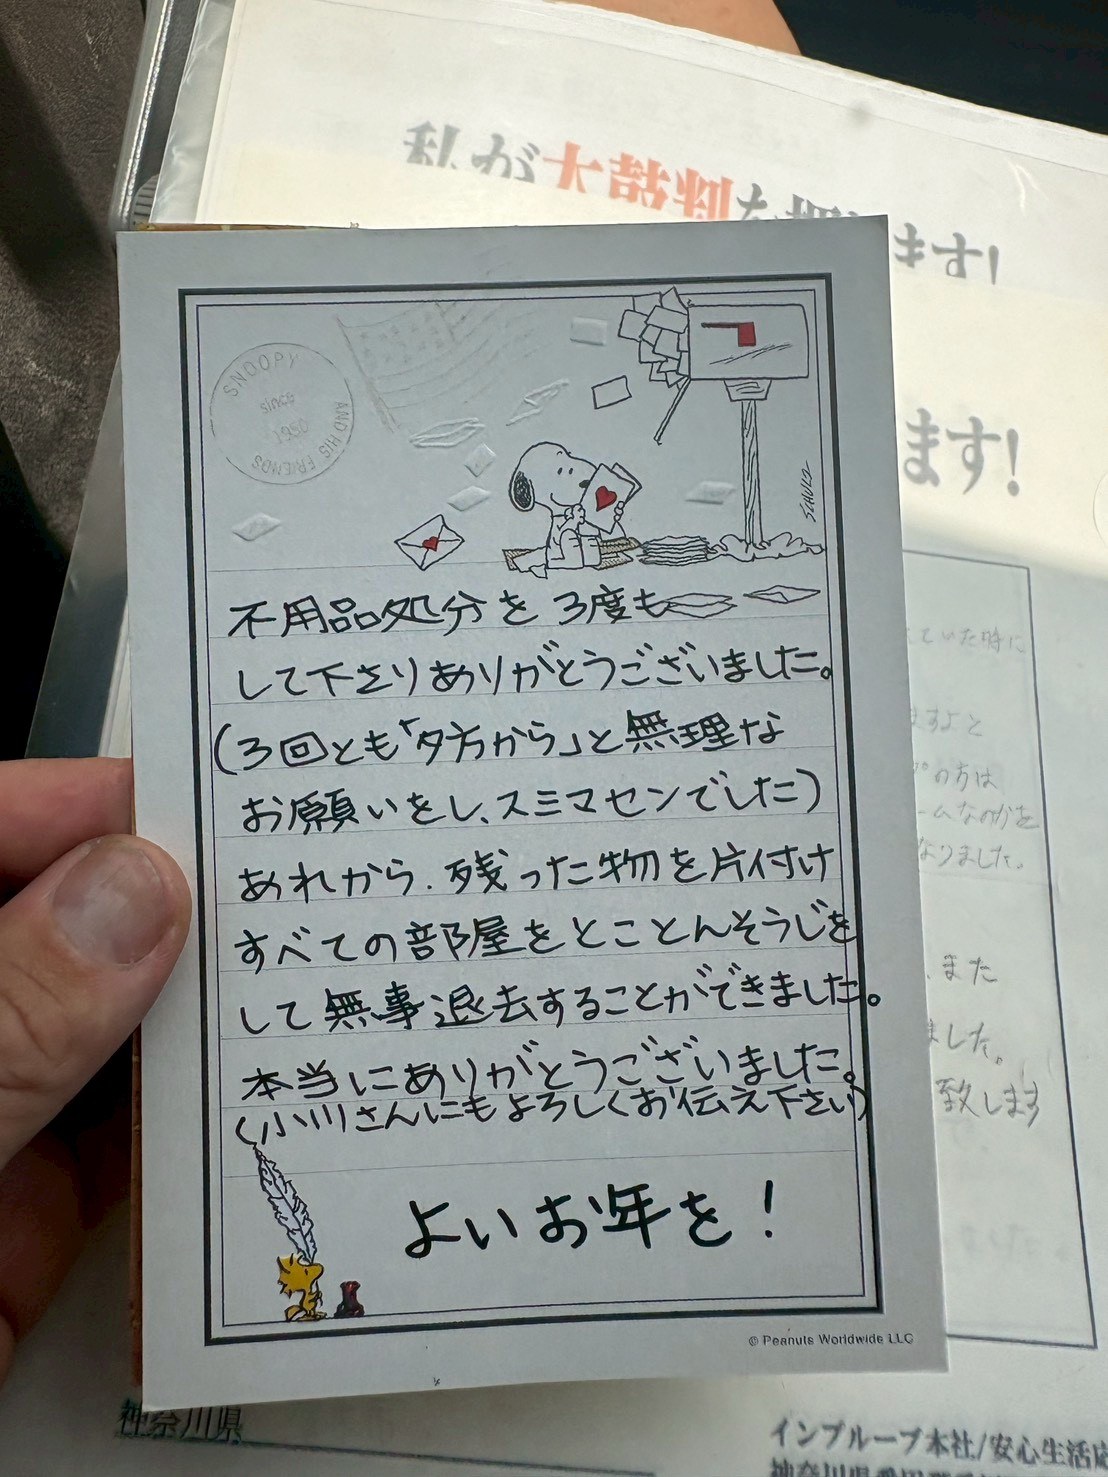 私が太鼓判を押します!
ます!
SNOOPY AND HIS FRIENDS
since 1950
SCHULZ
不用品処分を3度も
して下さりありがとうございました。
(3回とも「夕方から」と無理な
お願いをし、スミマセンでした)
あれから、残った物を片付け
すべての部屋をとことんそうじを
して無事退去することができました。
本当にありがとうございました。
(小川さんにもよろしくお伝え下さい)
よいお年を!
© Peanuts Worldwide LLC
ていた時に
ますよと
の方は
ームなのかを
なりました。
、また
ました。
致します
神奈川県
インプループ本社/安心生活応
神奈川県